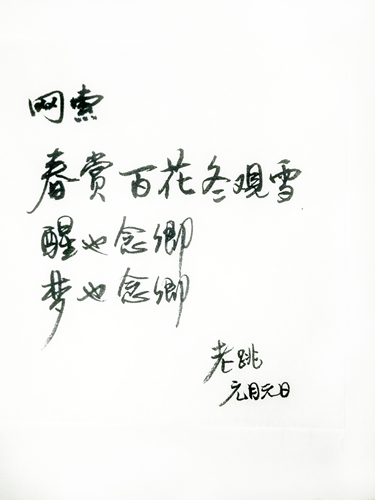 网索
春赏百花冬观雪
醒也念卿
梦也念卿
老跳
元月元日